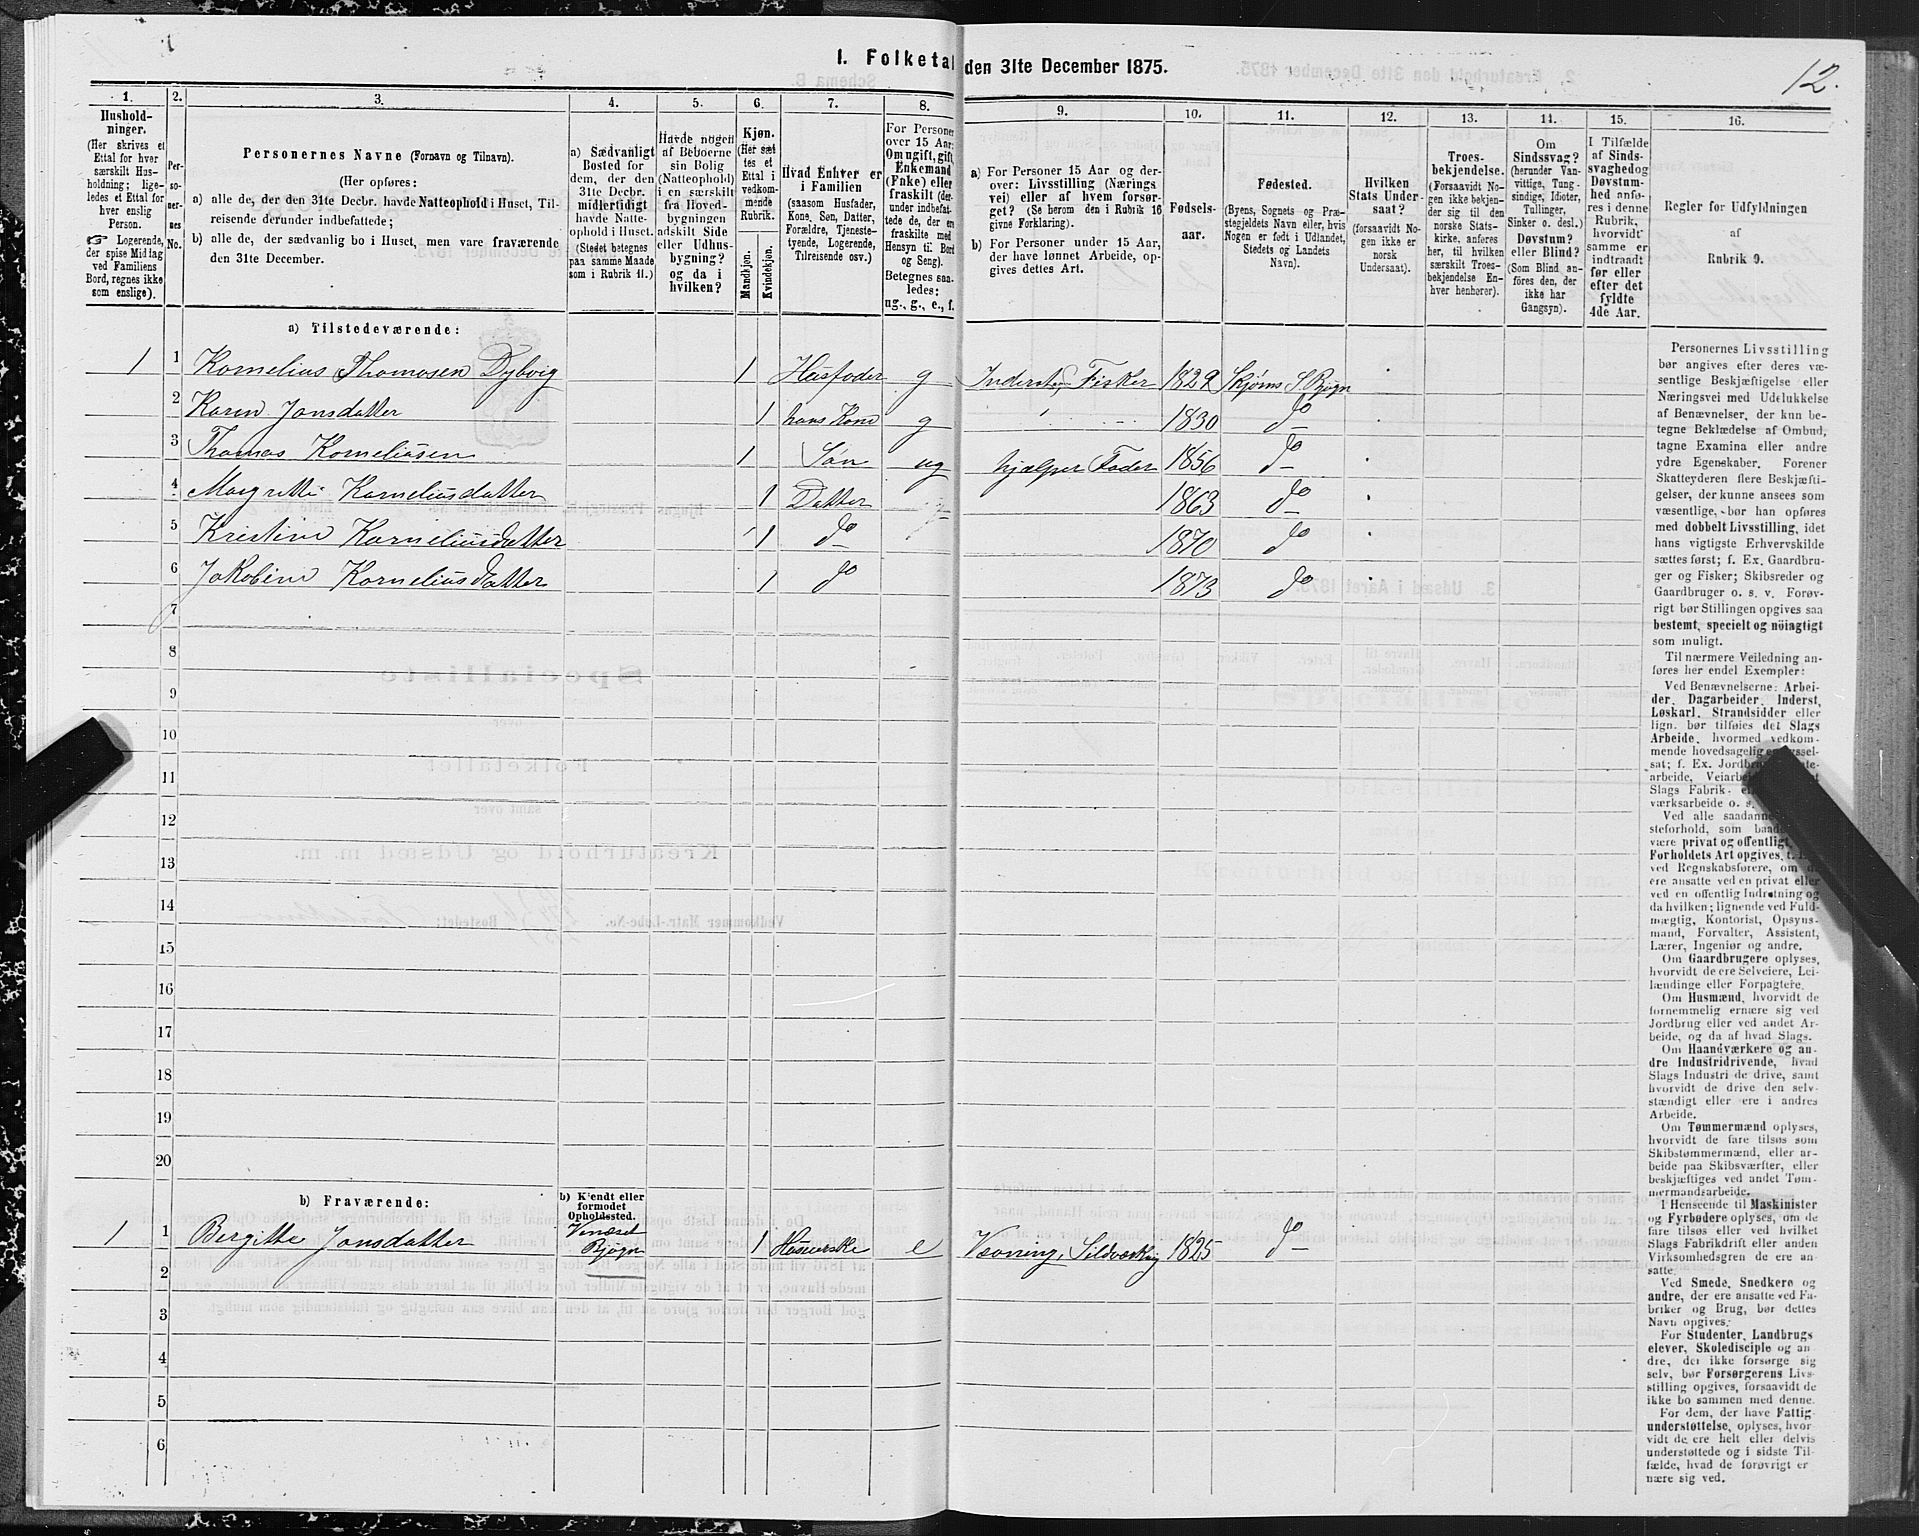 I. Folketal den 31te December 1875.
12.
1. 2. 3. 4. 5. 6. 7. 8. 9. 10. 11. 12. 13. 14. 15. 16.
Hushold-
ninger.
(Her skrives et
Ettal for hver
særskilt Hus-
holdning; lige-
ledes et Ettal for
hver enslig
Person.
☞ Logerende,
der spise Middag
ved Familiens
Bord, regnes ikke
som enslige).
Per-
so-
ner-
nes
No.
Personernes Navne (Fornavn og Tilnavn).
(Her opføres:
a) alle de, der den 31te Decbr. havde Natteophold i Huset, Til-
reisende derunder indbefattede;
b) alle de, der sædvanlig bo i Huset, men vare fraværende
den 31te December.
a) Sædvanligt
Bosted for
dem, der den
31te Decbr.
midlertidigt
havde Natte-
ophold i Huset.
(Stedet betegnes
paa samme Maade
som i Rubrik 11.)
Havde nogen
af Beboerne
sin Bolig
(Natteophold)
i en særskilt
fra Hoved-
bygningen
adskilt Side
eller Udhus-
bygning?
og da i
hvilken?
Kjøn.
(Her sæt
tes et
Ettal i
vedkom-
mende
Rubrik.
Mandkjøn.
Kvindekjøn.
Hvad Enhver er
i Familien
(saasom Husfader,
Kone, Søn, Datter,
Forældre, Tjeneste-
tyende, Logerende,
Tilreisende osv.)
For Personer
over 15 Aar:
Om ugift, gift,
Enkemand
(Enke) eller
fraskilt (der-
under indbefat-
tede de, der ere
fraskilte med
Hensyn til Bord
og Seng).
Betegnes saa-
ledes:
ug., g., e., f.
a) For Personer 15 Aar og der-
over: Livsstilling (Nærings
vei) eller af hvem forsør-
get? (Se herom den i Rubrik 16
givne Forklaring).
b) For Personer under 15 Aar,
der have lønnet Arbeide, op-
gives dettes Art.
Fødsels-
aar.
Fødested.
(Byens, Sognets og Præ-
stegjeldets Navn eller, hvis
Nogen er født i Udlandet,
Stedets og Landets
Navn).
Hvilken
Stats Under-
saat?
(forsaavidt No-
gen ikke er
norsk
Undersaat).
Troes-
bekjendelse.
(Forsaavidt No-
gen ikke bekjen-
der sig til den
norske Stats-
kirke. anføres
her, til hvilken
særskilt Troes-
bekjendelse En-
hver henhører).
Om
Sindssvag?
(herunder Van-
vittige, Tung-
sindige, Idioter,
Tullinger,
Sinker o. desl.)
Døvstum?
eller Blind?
(Som Blind an-
føres den, der
ikke har
Gangsyn).
I Tilfælde
af Sinds-
svaghed og
Døvstum-
hed anfø-
res i denne
Rubrik,
hvorvidt
samme er
indtraadt
før eller
efter det
fyldte
4de Aar.
Regler for Udfyldningen
af
Rubrik 9.
a) Tilstedeværende:
1 1 Kornelius Thomasen Dybvig 1 Husfader g Inderst, Fisker 1829 Skjørns S Bjugn
2 Karen Jonsdatter 1 hans Kone g 1830 do
3 Thomas Korneliusen 1 Søn ug hjælper Fader 1856 do
4 Margrette Korneliusdatter 1 Datter 1863 do
5 Kristine Korneliusdatter 1 do 1870 do
6 Jakobine Korneliusdatter 1 do 1873 do
7
8
9
10
11
12
13
14
15
16
17
18
19
20
b) Fraværende:
b) Kjendt eller
formodet
Opholdssted.
1 1 Bergitte Jonsdatter Bjugn 1 e 1825 do
2
3
4
5
6
Personernes Livsstilling
bør angives efter deres væ-
sentlige Beskjæftigelse eller
Næringsvei med Udelukkelse
af Benævnelser, der kun be-
tegne Beklædelse af Ombud,
tagne Examina eller andre
ydre Egenskaber. Forener
Skatteyderen flere Beskjæfti-
gelser, der kunne ansees som
væsentlige, bør han opføres
med dobbelt Livsstilling, idet
hans vigtigste Erhvervskilde
sættes først; f. Ex. Gaardbru-
ger og Fisker; Skibsreder og
Gaardbruger o. s. v. Forøv-
rigt bør Stillingen opgives saa
bestemt, specielt og nöiagtigt
som muligt.
Til nærmere Veiledning an-
føres her endel Exempler:
Ved Benævnelserne: Arbei-
der, Dagarbeider, Inderst,
Løskarl, Strandsidder eller
lign. bør tilføies det Slags
Arbeide, hvormed vedkom-
mende hovedsagelig
sat; f. Ex.
arbeide,
Slags Fabrik-
værksarbeide o. s.
Ved alle saadanne
steforhold, som
være privat og offentligt,
Forholdets Art opgives,
ved Regnskabsførere, om
ere ansatte ved en privat eller
ved en offentlig Indretning og
da hvilken; lignende ved Fuld-
mægtig, Kontorist, Opsyns-
mand, Forvalter, Assistent,
Lærer, Ingeniør og andre.
Om Gaardbrugere oplyses,
hvorvidt de ere Selveiere, Lei-
lændinge eller Forpagtere.
Om Husmænd, hvorvidt de
fornemmelig ernære sig ved
Jordbrug eller ved andet Ar-
beide, og da af hvad Slags.
Om Haandværkere og an-
dre Industridrivende, hvad
Slags Industri de drive, samt
hvorvidt de drive den selv-
stændigt eller ere i andres
Arbeide.
Om Tømmermænd oplyses,
hvorvidt de fare tilsøs som
Skibstømmermænd, eller ar-
beide paa Skibsværfter, eller
beskjæftiges ved andet Tøm-
mermandsarbeide.
I Henseende til Maskinister
og Fyrbødere oplyses, om de
fare tilsøs eller ved hvilket
Fabrikdrift eller anden
Virksomhedsgren de ere an-
satte.
Ved Smede, Snedkere og
andre, der ere ansatte ved Fa-
briker og Brug, bør dettes
Navn opgives.
For Studenter, Landbrugs
elever, Skoledisciple og an
dre, der ikke forsørge sig
selv, bør Forsørgerens Livs-
stilling opgives, forsaavidt de
ikke bo sammen med denne.
For dem, der have Fattig-
understøttelse, oplyses, hvor-
vidt de ere helt eller delvis
understøttede og i sidste Til-
fælde, hvad de forøvrigt er
nære sig ved.